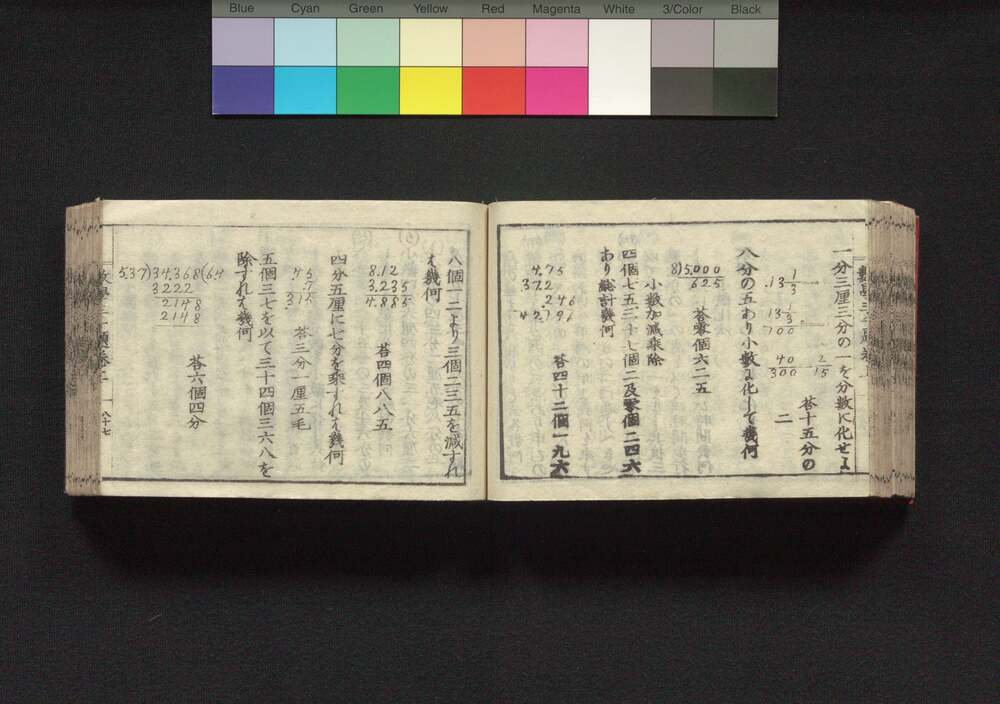 Blue Cyan Green Yellow Red Magenta White 3/Color Black
一分三厘三分の一を分數に化せよ
.13 1/3
13 1/3
100
40 2
300 15
荅十五分の
二
八分の五あり小數に化して幾何
8)5,000
625
荅零個六二五
小數加減乘除
四個七五、三十七個二及零個二四六
あり總計幾何
4.75
37.2
.246
42.196
荅四十二個一九六
八個一二より三個二三五を減すれ
ば幾何
8.12
3.235
4.885
荅四個八八五
四分五厘に七分を乘すれば幾何
.45
.7
.315
荅三分一厘五毛
五個三七を以て三十四個三六八を
除すれば幾何
5.37)34.368(6.4
3222
2148
2148
荅六個四分